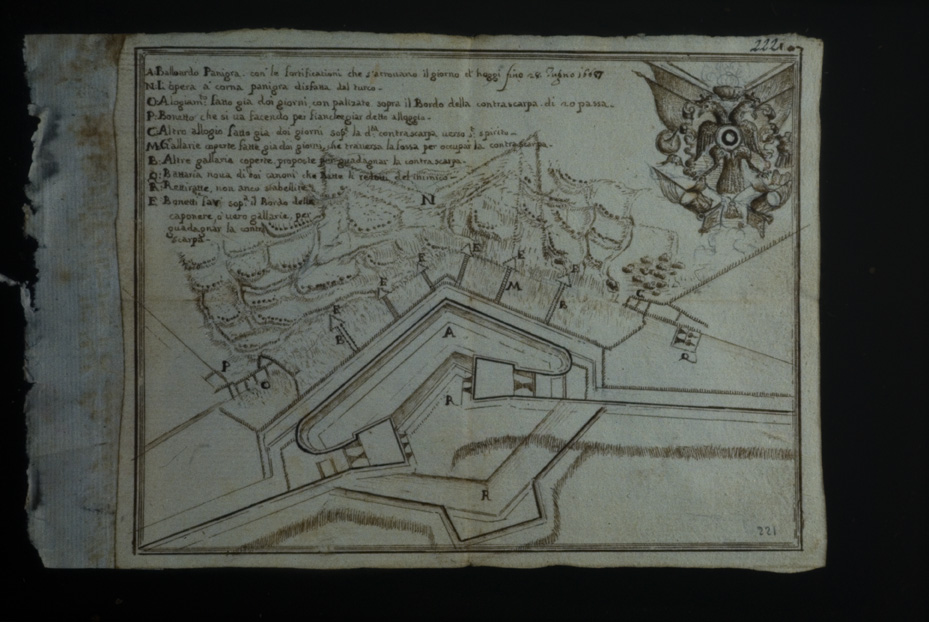 222
A. Balloardo Panigra. con le fortificationi che s'attrovano il giorno d'hoggi fino 28. Iugno 1667
N. L'opera a corna panigra disfatta dal turco.
O. fatto gia doi giorni con palizate sopra il Bordo della contrascarpa. di 20 passa.
P. Bonetto che si va facendo per fiancheggiar detto alloggio.
C. Altro allogio fatto gia doi giorni sop.ª la d.ta contrascarpa verso S. spirito.
M. Gallarie coperte fatte gia doi giorni, che traversa la fossa per occupar la contrascarpa.
B. Altre gallarie coperte, proposte per guadagnar la contrascarpa.
Q. Battaria nova di doi canoni che batte li redotti del inimico.
R. Rettiratte, non anco stabellite.
E. Bonetti sop.ª il Bordo delle
caponere, o vero gallarie, per
guadagnar la contra
scarpa.
N
E
E
E
E
E
E
M
B
C
B
A
Q
P
O
R
R
221